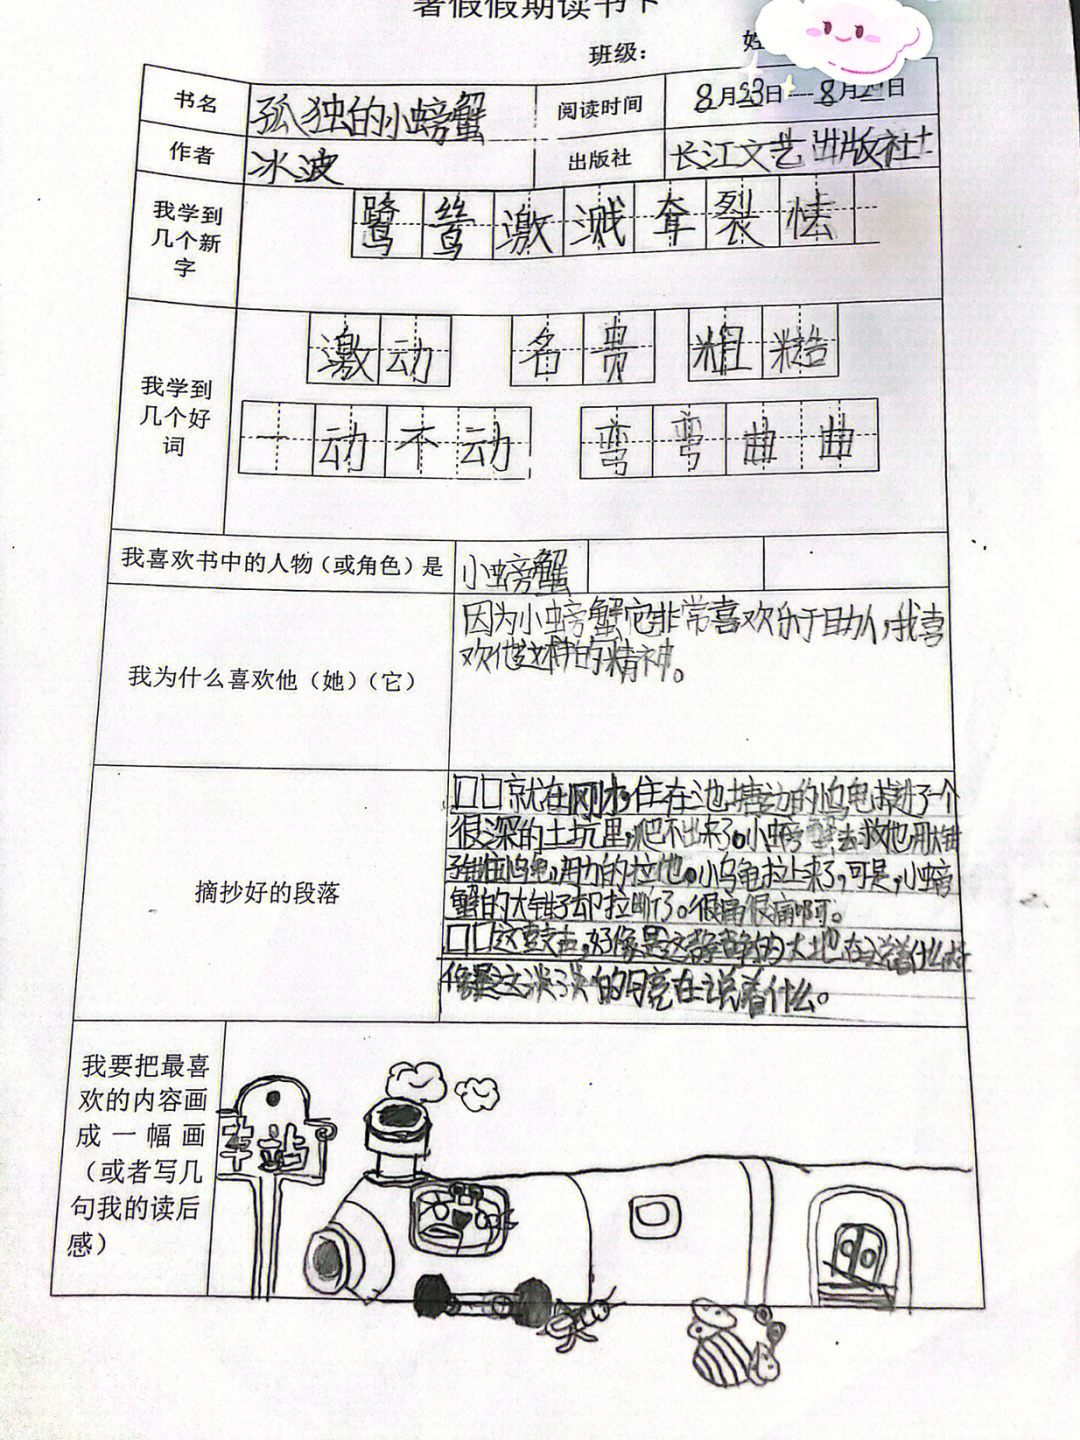 暑假假期读书卡
班级：
书名 孤独的小螃蟹 阅读时间 8月23日—8月2日
作者 冰波 出版社 长江文艺出版社
我学到几个新字 鹭鸶激溅奔裂怯
我学到几个好词 激动 名贵 粗糙
一动不动 弯弯曲曲
我喜欢书中的人物（或角色）是 小螃蟹
我为什么喜欢他（她）（它）
因为小螃蟹它非常喜欢乐于助人，我喜
欢他这种的精神。
摘抄好的段落
口口就在刚才，住在池塘边的小乌龟掉进了一个
很深的土坑里，爬不出来了。小螃蟹去救他用大钳
子钳住小乌龟，用力的拉他。小乌龟拉上来了，可是，小螃
蟹的大钳子却拉断了。很痛很痛啊。
口口这鼓声，好像是这静静的大地在说着什么，好
像是这淡淡的月亮在说着什么。
我要把最喜
欢的内容画
成一幅画
（或者写几
句我的读后
感）
车站